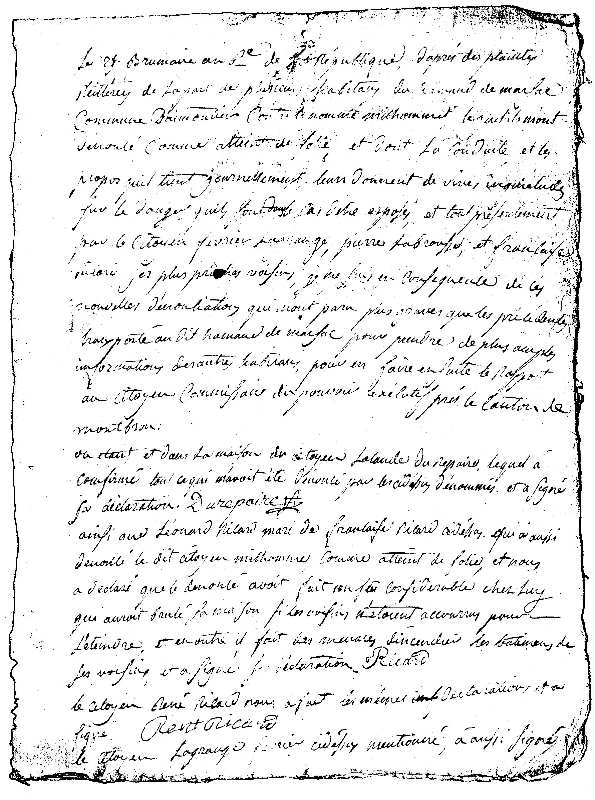 Le 28 Brumaire an 6.e de la République, d'après des plaintes
réitérées de la part de plusieurs habitans du hamaud de marsac
Commune Daimoutiers Contre le nommé milhommet
denoncé Comme atteint de folie et dont la Conduite et les
propos quil tient journellement leurs donnent de vives inquietudes
sur le danger quils d'etre exposés, et tout présentement
par le Citoyen fevrier Lagrange, pierre Labrousse, et francoise
ricard ses plus proches voisins, je me suis en Consequence de ces
nouvelles dénontiations qui m'ont paru plus graves que les précédentes
transporté au dit hamaud de marsac pour prendre de plus amples
informations des autres habitans, pour en faire en suite le rapport
au Citoyen Commissaire du pouvoir executif près le Canton de
montbron.
ou etant et dans la maison du citoyen Lalande Durepaire, lequel à
confirmé tout ce qui m'avoit été denoncé par les cidessus denommés, et a signé
sa déclaration. Durepaire
ainsi que Léonard Ricard mari de francoise Ricard cidessus qui à aussi
denoncé le dit citoyen milhomme comme atteint de folie, et nous
a déclaré que le denoncé avoit fait un feu considérable chez luy
qui auroit brulé sa maison si les voisins n'etoient accourrus pour
l'eteindre, et en outre il fait des menaces d'incendier les batimens de
ses voisins, et a signé sa déclaration Ricard
le citoyen René Ricard nous a fait les mêmes declarations et a
signé René Ricard
le citoyen Lagrange cidessus mentionné, à aussi signé